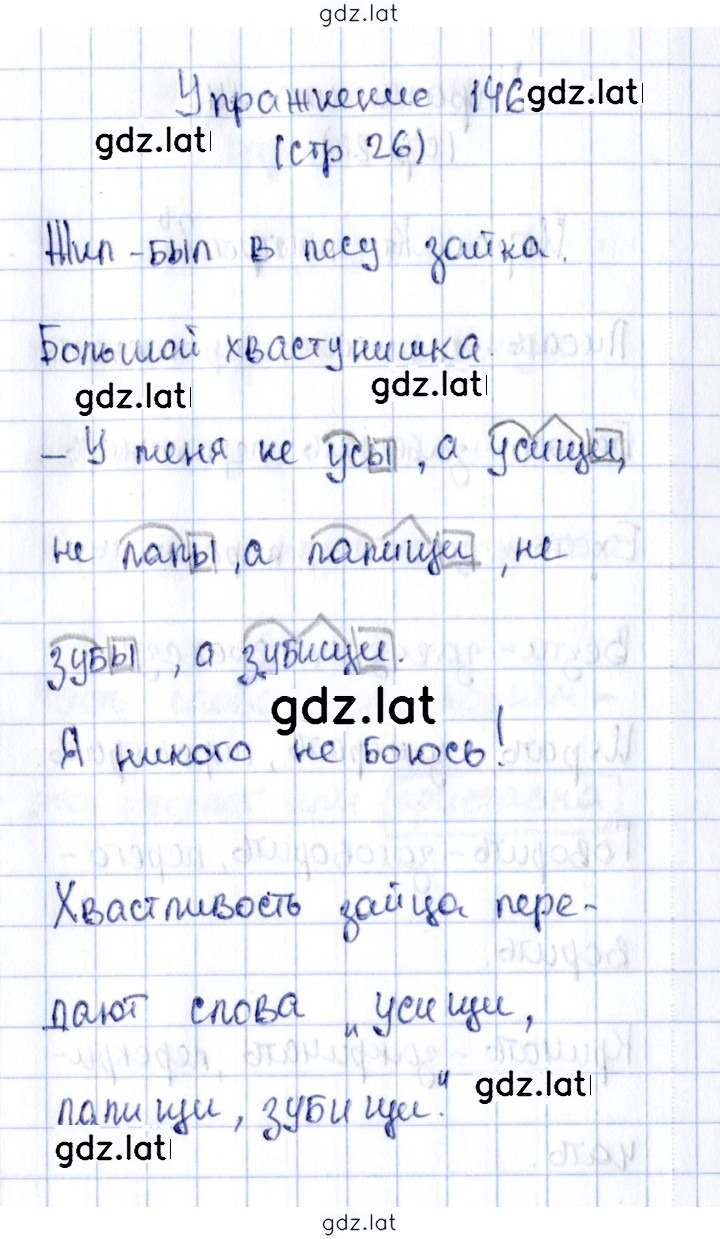 gdz.lat
Упражнение 146 gdz.lat
gdz.lat (стр. 26)
Жил-был в лесу зайка.
Большой хвастунишка.
gdz.lat gdz.lat
- У меня не усы, а усищи,
не лапы, а лапищи, не
зубы, а зубищи.
gdz.lat
Я никого не боюсь!
Хвастливость зайца пере-
дают слова "усищи,
лапищи, зубищи."
gdz.lat
gdz.lat
gdz.lat